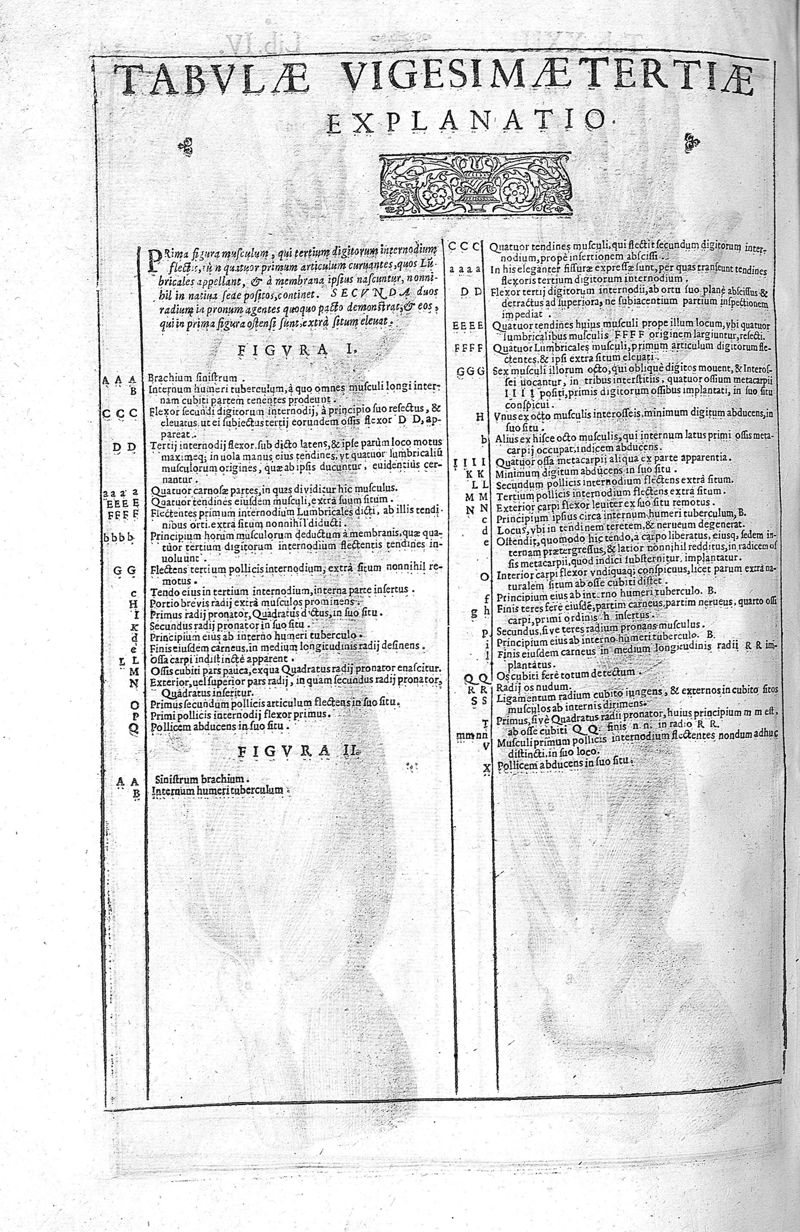 TABVLÆ VIGESIMÆTERTIÆ
EXPLANATIO.
PRima figura musculum, qui tertium digitorum internodium
flectit, in quatuor primum articulum curuantes, quos Lu-
bricales appellant, & à membrana ipsius nascuntur, nonni-
hil in natiua sede positos, continet. SECVNDA duos
radium in pronum agentes quoquo pacto demonstrat, & eos,
qui in prima figura ostensi sunt, extrà situm eleuat.
FIGVRA I.
A A A Brachium sinistrum.
B Internum humeri tuberculum, à quo omnes musculi longi inter-
nam cubiti partem tenentes prodeunt.
C C C Flexor secundi digitorum internodij, à principio suo resectus, &
eleuatus, ut ei subiectus tertij eorundem ossis flexor D D, ap-
pareat.
D D Tertij internodij flexor, sub dicto latens, & ipse parùm loco motus
maximeq; in uola manus eius tendines, vt quatuor lumbricaliũ
musculorum origines, quæ ab ipsis ducuntur, euidentiùs cer-
nantur.
a a a a Quatuor carnosæ partes, in quas diuiditur hic musculus.
EEEE Quatuor tendines eiusdem musculi, extrà suum situm.
FFFF Flectentes primum internodium Lumbricales dicti, ab illis tendi-
nibus orti, extrà situm nonnihil diducti.
b b b b Principium horum musculorum deductum à membranis, quæ qua-
tuor tertium digitorum internodium flectentis tendines in-
uoluunt.
G G Flectens tertium pollicis internodium, extrà situm nonnihil re-
motus.
c Tendo eius in tertium internodium, interna parte insertus.
H Portio breuis radij extrà musculos prominens.
I Primus radij pronator, Quadratus dictus, in suo situ.
K Secundus radij pronator in suo situ.
d Principium eius ab interno humeri tuberculo.
e Finis eiusdem carneus, in medium longitudinis radij desinens.
L L Ossa carpi indistinctè apparent.
M Ossis cubiti pars pauca, ex qua Quadratus radij pronator enascitur.
N Exterior, uel superior pars radij, in quam secundus radij pronator,
Quadratus inseritur.
O Primus secundum pollicis articulum flectens in suo situ.
P Primi pollicis internodij flexor primus.
Q Pollicem abducens in suo situ.
FIGVRA II.
A A Sinistrum brachium.
B Internum humeri tuberculum.
C C C Quatuor tendines musculi, qui flectit secundum digitorum inter-
nodium, propè insertionem abscissi.
a a a a In his eleganter fissuræ expressæ sunt, per quas transeunt tendines
flexoris tertium digitorum internodium.
D D Flexor tertij digitorum internodii, ab ortu suo planè abscissus &
detractus ad superiora, ne subiacentium partium inspectionem
impediat.
EEEE Quatuor tendines huius musculi prope illum locum, vbi quatuor
lumbricalibus musculis FFFF originem largiuntur, resecti.
FFFF Quatuor Lumbricales musculi, primum articulum digitorum fle-
ctentes, & ipsi extra situm eleuati.
GGG Sex musculi illorum octo, qui obliquè digitos mouent, & Interos-
sei uocantur, in tribus interstitiis, quatuor ossium metacarpii
I I I I positi, primis digitorum ossibus implantati, in suo situ
conspicui.
H Vnus ex octo musculis interosseis, minimum digitum abducens, in
suo situ.
b Alius ex hisce octo musculis, qui internum latus primi ossis meta-
carpij occupat, indicem abducens.
I I I I Quatuor ossa metacarpij aliqua ex parte apparentia.
K K Minimum digitum abducens in suo situ.
L L Secundum pollicis internodium flectens extrà situm.
M M Tertium pollicis internodium flectens extra situm.
N N Exterior carpi flexor leuiter ex suo situ remotus.
c Principium ipsius circa internum humeri tuberculum, B.
d Locus, vbi in tendinem teretem, & nerueum degenerat.
e Ostendit, quomodo hic tendo, à carpo liberatus, eiusq; sedem in-
ternam prætergressus, & latior nonnihil redditus, in radicem os
sis metacarpii, quod indici substernitur, implantatur.
O Interior carpi flexor vndiquaq; conspicuus, licet parum extra na-
turalem situm ab osse cubiti distet.
f Principium eius ab interno humeri tuberculo. B.
g h Finis teres ferè eiusdẽ, partim carneus, partim nerueus, quarto ossi
carpi, primi ordinis h insertus.
P Secundus, siue teres radium pronans musculus.
i Principium eius ab interno humeri tuberculo. B.
l Finis eiusdem carneus in medium longitudinis radii R R im-
plantatus.
Q Q Os cubiti ferè totum detectum.
R R Radij os nudum.
S S Ligamentum radium cubito iungens, & externos in cubito sitos
musculos ab internis dirimens.
T Primus, siuè Quadratus radii pronator, huius principium m m est,
mmnn ab osse cubiti Q Q. finis n. n. in radio R R.
V Musculi primum pollicis internodium flectentes nondum adhuc
distincti, in suo loco.
X Pollicem abducens in suo situ.